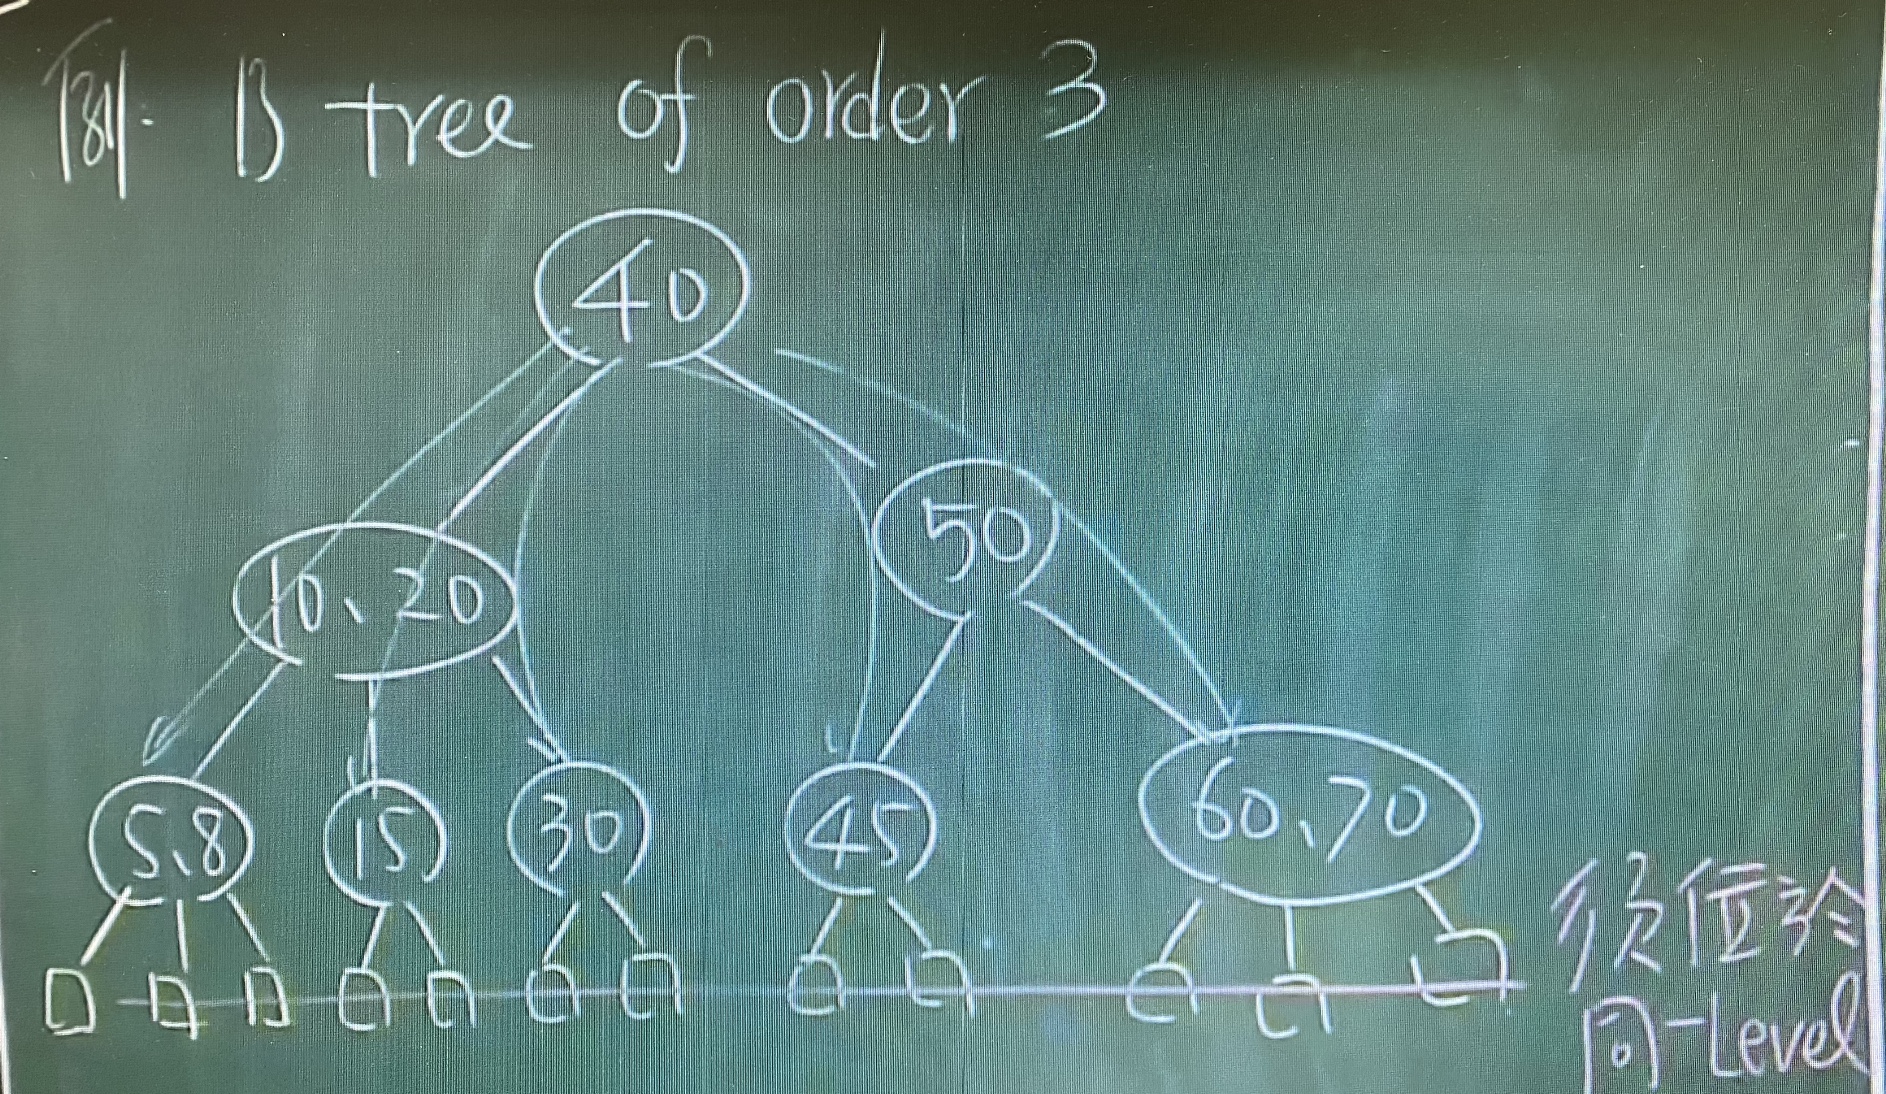 例. B tree of order 3
40
50
10、20
5、8 15 30 45 60、70
須位於
同一Level